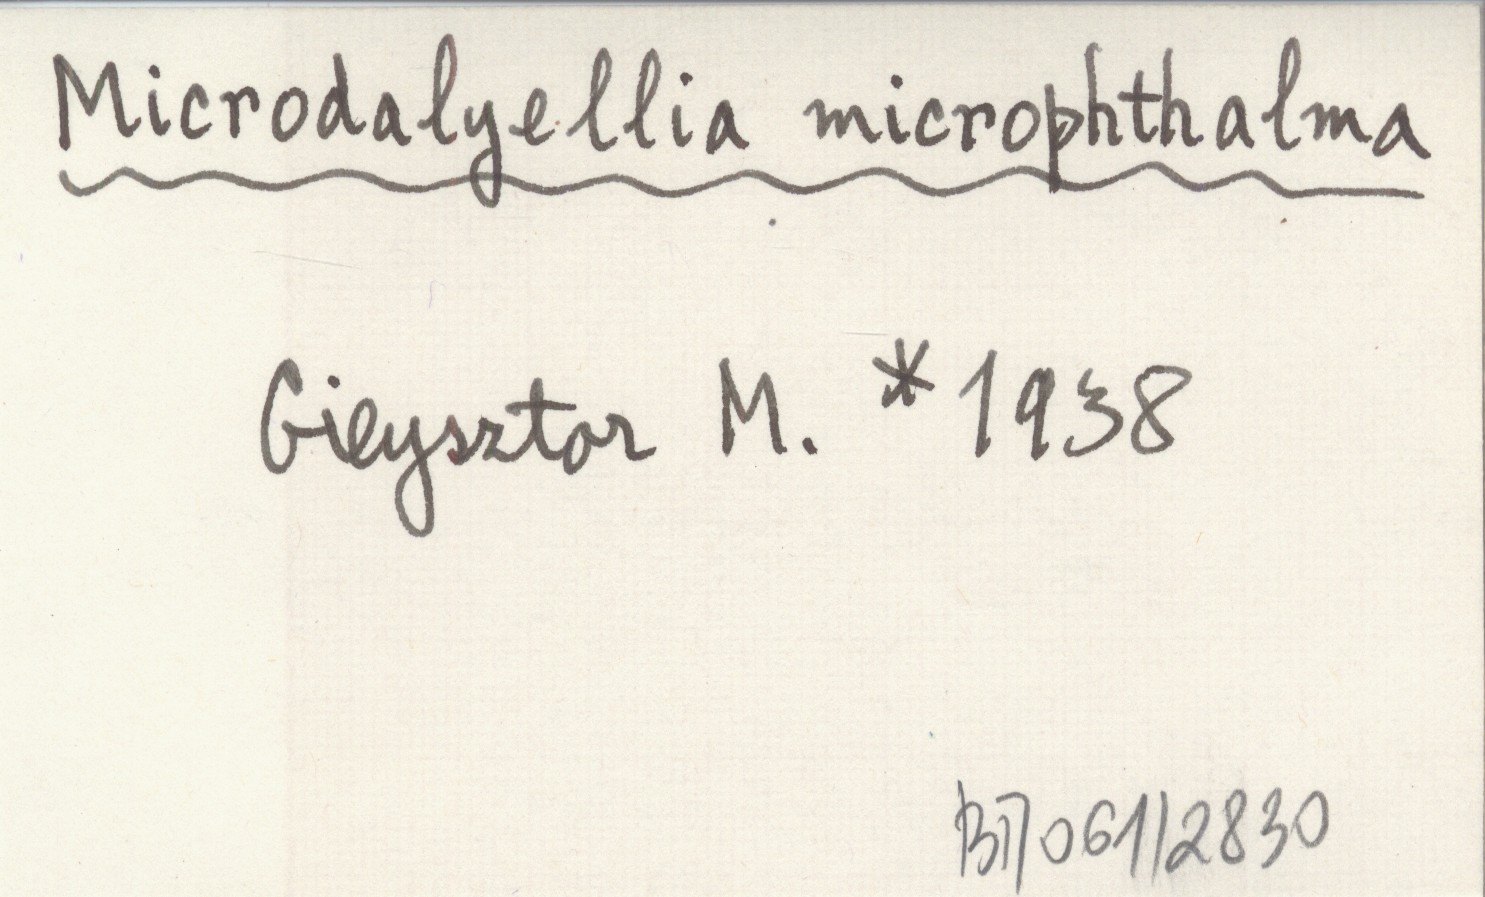 Microdalyellia microphthalma
Gieysztor M. * 1938